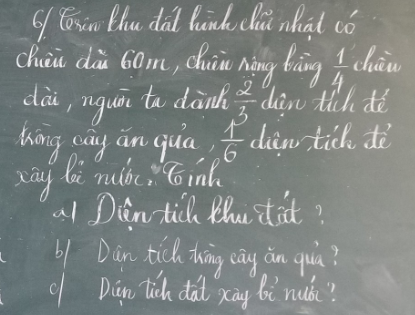 6/ Trên khu đất hình chữ nhật có
chiều dài 60m, chiều rộng bằng 1/4 chiều
dài, người ta dành 2/3 diện tích để
trồng cây ăn quả, 1/6 diện tích để
xây bể nước. Tính
a/ Diện tích khu đất ?
b/ Diện tích trồng cây ăn quả ?
c/ Diện tích đất xây bể nước ?